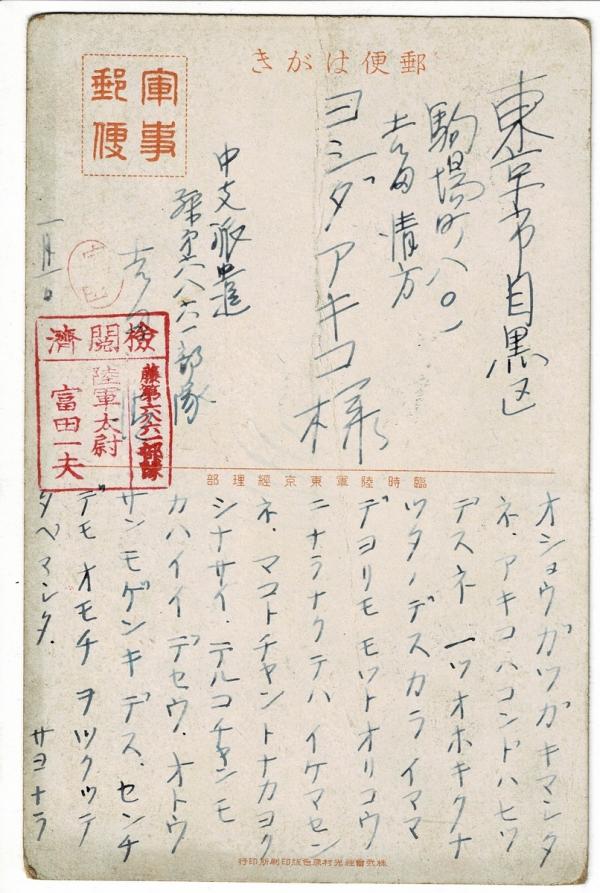 郵便はがき
軍事
郵便
東京市目黒区
駒場町八〇一
吉田情方
ヨシダアキコ様
中支派遣
藤第六八六一部隊
吉田
一月一日
検閲済
藤第六八六一部隊
陸軍大尉
富田一夫
臨時陸軍東京経理部
オショウガツガキマシタ
ネ・アキコハコンドハヒツ
デスネ 一ツオホキクナ
ツタノデスカラ イママ
デヨリモ モットオリコウ
ニナラナクテハ イケマセン
ネ・マコトチャントナカヨク
シナサイ・テルコチャンモ
カハイイ デセウ・オトウ
サン モゲンキデス・センチ
デモ オモチ ヲツクッテ
タベマシタ・ サヨナラ
株式會社光村原色版印刷所印行